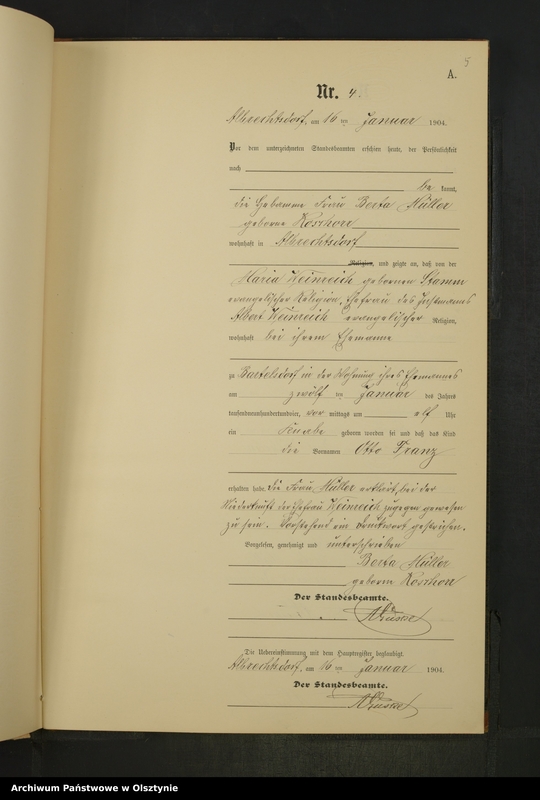 5
A.
Nr. 4.
Albrechtsdorf, am 16 ten Januar 1904.
Vor dem unterzeichneten Standesbeamten erschien heute, der Persönlichkeit
nach
be kannt,
die Hebamme Frau Berta Müller
geborne Koschorr
wohnhaft in Albrechtsdorf
Religion, und zeigte an, daß von der
Maria Weinreich gebornen Stamm
evangelischer Religion, Ehefrau des Instmanns
Albert Weinreich evangelischer Religion,
wohnhaft bei ihrem Ehemanne
zu Bartelsdorf in der Wohnung ihres Ehemannes
am zwölf ten Januar des Jahres
tausendneunhundertundvier, vor mittags um elf Uhr
ein Knabe geboren worden sei und daß das Kind
die Vornamen Otto Franz
erhalten habe. Die Frau Müller erklärt, bei der
Niederkunft der Ehefrau Weinreich zugegen gewesen
zu sein. Vorstehend ein Druckwort gestrichen.
Vorgelesen, genehmigt und unterschrieben
Berta Müller
geborne Koschorr
Der Standesbeamte.
Die Uebereinstimmung mit dem Hauptregister beglaubigt.
Albrechtsdorf, am 16 ten Januar 1904.
Der Standesbeamte.
Archiwum Państwowe w Olsztynie